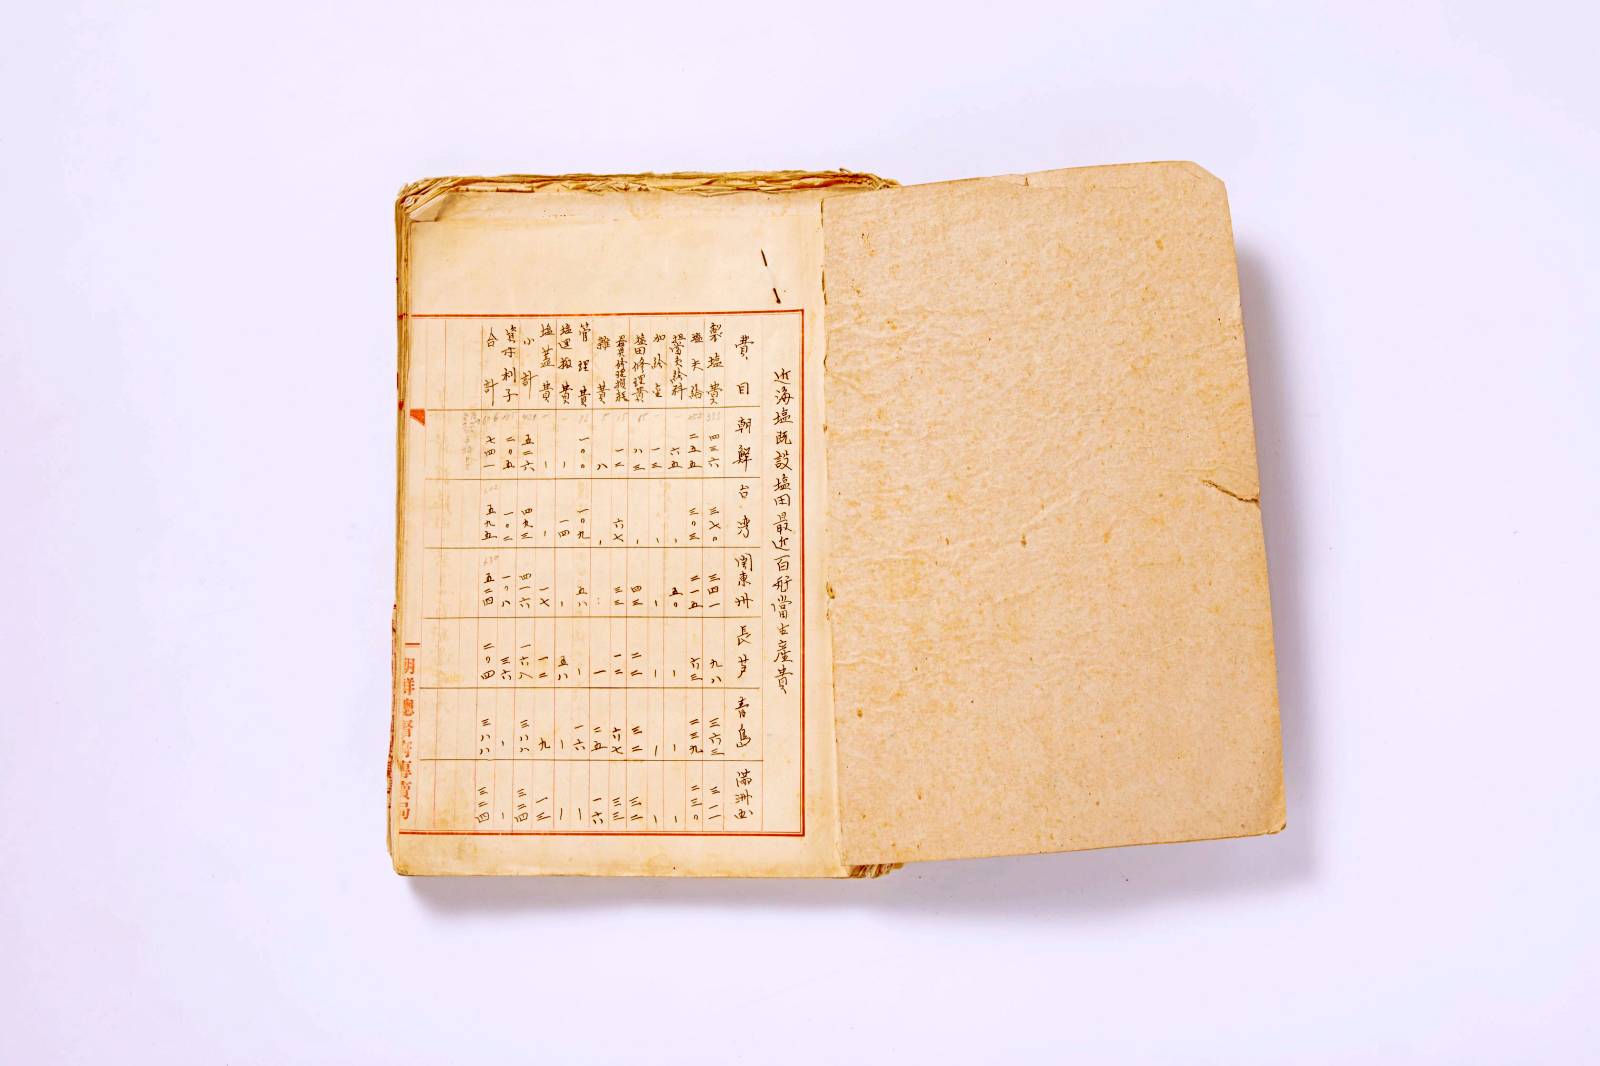 近海塩既設塩田最近百斤當生産費
費目 朝鮮 台湾 関東州 長芦 青島 満洲国
製塩費 四三六 三七〇 三四一 九八 三六三 三一一
塩夫給 二五五 三〇三 二一五 六三 二三九 二三〇
六五 、 五〇 ー ー ー
加給金 一三 、 ー ー ー ー
塩田修理費 八三 、 四三 二二 三二 三二
器具修理損耗 一二 六七 三三 一二 六七 三三
雜費 八 、 一 二五 一六
管理費 一〇〇 一〇九 五八 ー 一六 ー
塩運搬費 ー 一四 ー 五八 ー ー
塩蓋費 ー 、 一七 一二 九 一三
小計 五三六 四九三 四一六 一六八 三八八 三二四
資本利子 二〇五 一〇二 一〇八 三六 ー ー
合計 七四一 五九五 五二四 二〇四 三八八 三二四
朝鮮總督府專賣局